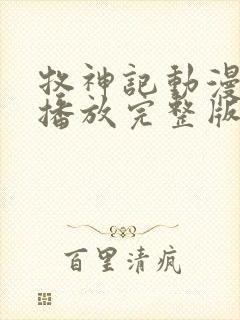 牧神記動漫
播放完整版
百里清疯